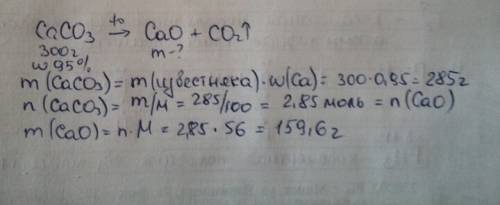 CaCO₃ →t° CaO + CO₂↑
300г m-?
w 95%
m(CaCO₃) = m(известняка)·w(Ca) = 300·0,95 = 285г
n(CaCO₃) = m/M = 285/100 = 2,85 моль = n(CaO)
m(CaO) = n·M = 2,85·56 = 159,6г